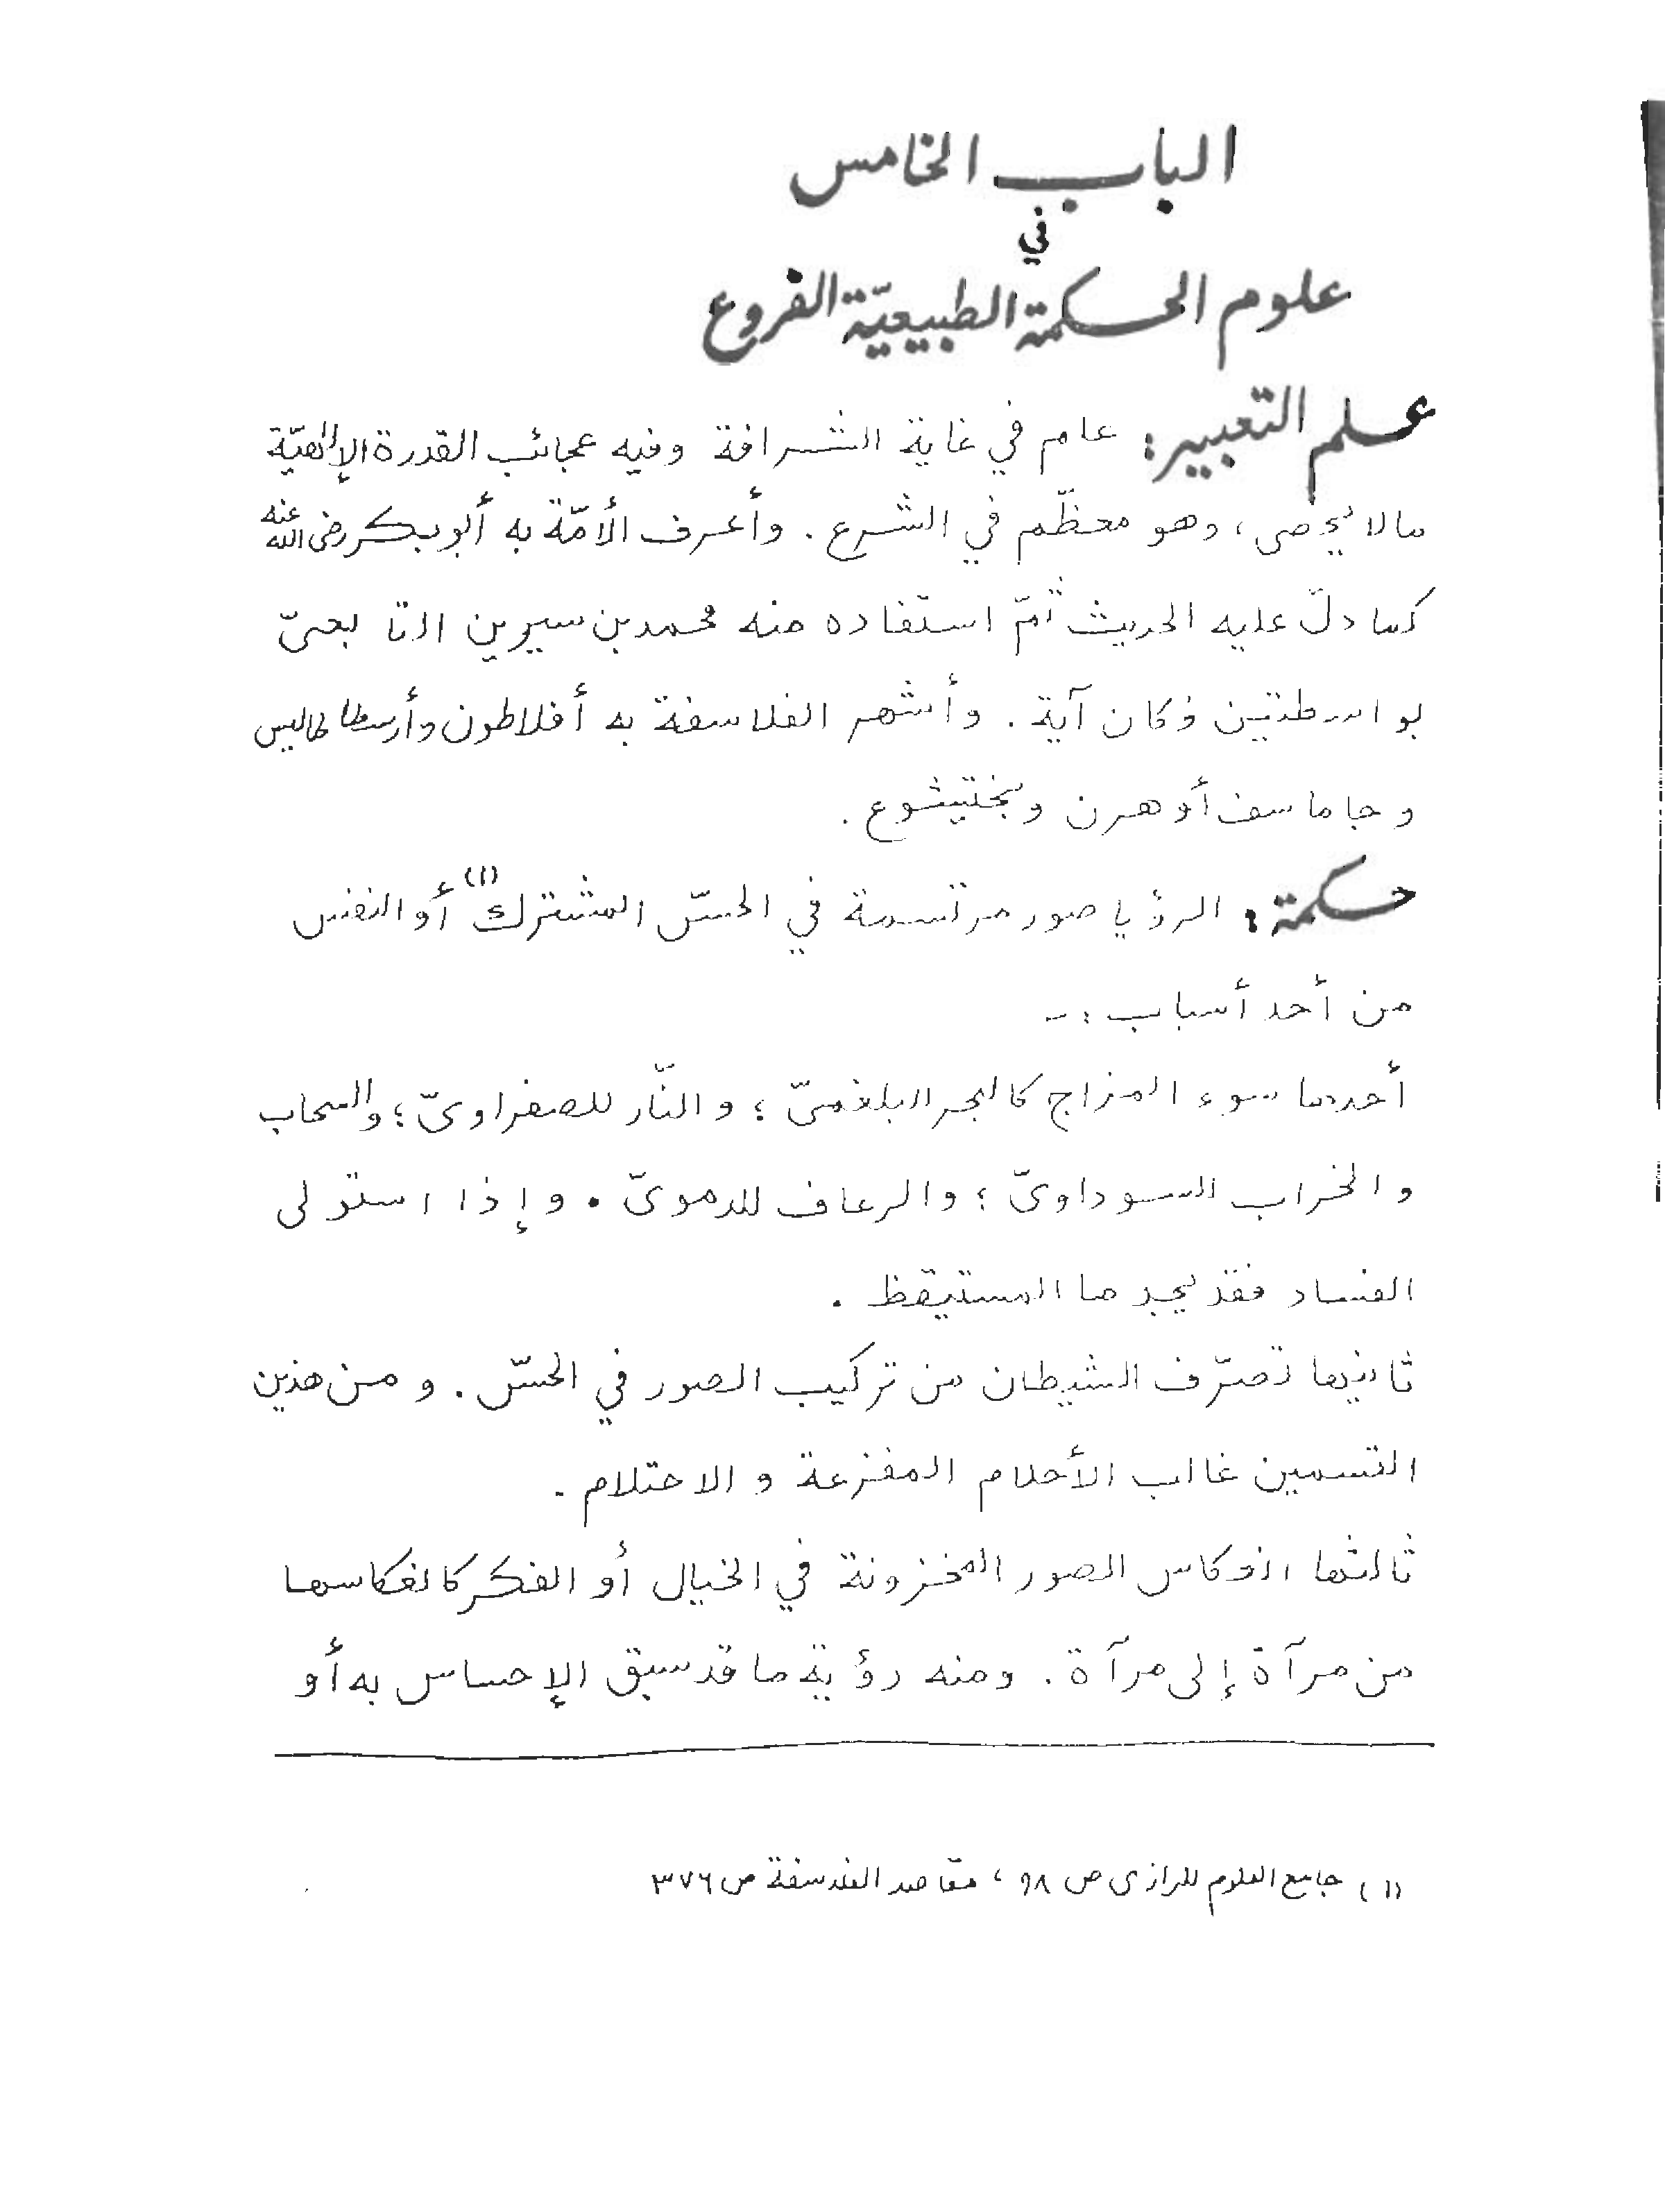 الباب الخامس
في
علوم الحكمة الطبيعيّة الفروع
علم التعبير: علم في غاية الشرافة وفيه عجائب القدرة الإلٰهيّة
مالا يحصى، وهو معظّم في الشرع. وأعرف الأمّة به أبوبكر رضى الله عنه
كما دلّ عليه الحديث ثمّ استفاده منه محمد بن سيرين التابعىّ
بواسطتين فكان آية. وأشهر الفلاسفة به أفلاطون وأرسطاطاليس
وجاماسف أو هرن وبختيشوع.
حكمة: الرؤيا صور مرتسمة في الحسّ المشترك(١) أو النفس
من أحد أسباب :-
أحدها سوء المزاج كالبحر البلغمىّ؛ والنّار للصفراوىّ؛ والسحاب
والخراب السوداوىّ؛ والرعاف للدموىّ. وإذا استولى
الفساد فقد يجدها المستيقظ.
ثانيها تصرّف الشيطان من تركيب الصور في الحسّ. ومن هذين
القسمين غالب الأحلام المفزعة والاحتلام.
ثالثها انعكاس الصور المخزونة في الخيال أو الفكر كانعكاسها
من مرآة إلى مرآة. ومنه رؤية ما قد سبق الإحساس به أو
(١) جامع العلوم للرازى ص ٩٨، مقاصد الفلاسفة ص ٣٧٦